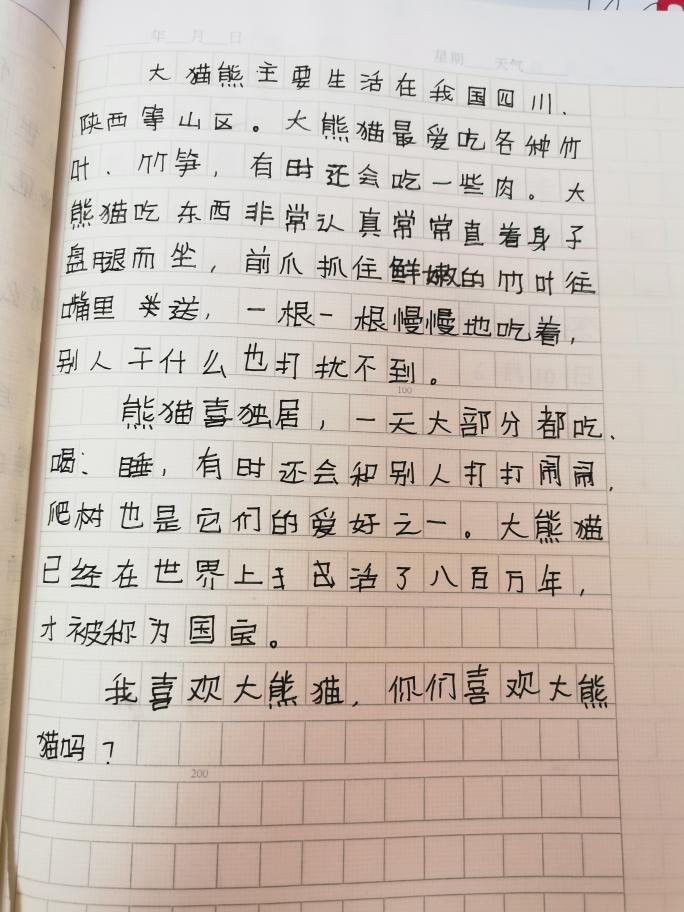 年 月 日
星期 天气
大猫熊主要生活在我国四川、
陕西等山区。大熊猫最爱吃各种竹
叶、竹笋，有时还会吃一些肉。大
熊猫吃东西非常认真常常直着身子
盘腿而坐，前爪抓住鲜嫩的竹叶往
嘴里送，一根一根慢慢地吃着，
别人干什么也打扰不到。
100
熊猫喜独居，一天大部分都吃、
喝、睡，有时还会和别人打打闹闹，
爬树也是它们的爱好之一。大熊猫
已经在世界上活了八百万年，
才被称为国宝。
我喜欢大熊猫，你们喜欢大熊
猫吗？
200